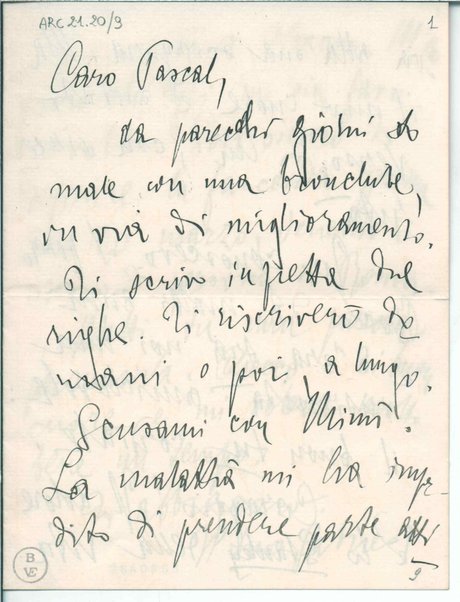 ARC 21.20/9
1
Caro Pascal,
da parecchi giorni sto
male con una bronchite,
in via di miglioramento.
Ti scrivo in fretta due
righe. Ti riscriverò do
mani o poi, a lungo.
Scusami con Mimi.
La malattia mi ha impe-
dito di prendere parte atti
B
VE
9